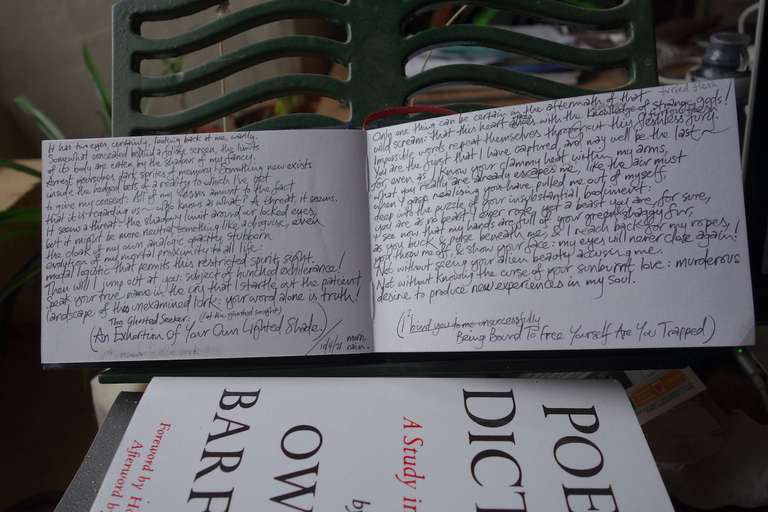 It has two eyes, certainly, looking back at me, warily.
Somewhat concealed behind a large screen, the limits
of its body are eaten by the shadows of my fancy.
dark sprites of memory: something new exists
inside the hedged bets of a reality to which I've yet
to give my consent. All of my visions amount to the fact
that it is regarding us — who knows as what? A threat, it seems.
It seems a threat: the shadowy limit around our locked eyes,
but it might be more neutral, something like a disguise, even
the cloak of my own analogic ghostly stubborn
evolution of my mortal proximity to all life:
modal logistic that permits this restricted spirit sight.
Then will I jump out at you: subject of hunched exhilerance!
Speak your true name in the cry that I startle out the patient
landscape of this unexamined lark: your word alone is truth!
The Ghosted Seeker. (let the ghosted sought)
(An Exhortion Of Your Own Lighted Shade.)
Only one thing can be certain in the aftermath of that
wild scream: that this heart with the of strange gods!
Impossible words repeat themselves throughout this restless fury.
You are the first that I have captured, and may well be the last —
for even as I know your clammy heat within my arms,
what you really are already escapes me, like the air must
when I gasp, realising you have pulled me out of myself:
deep into the puzzle of your insubstantial bodiment:
you are as no beast I ever rode, yet a beast you are, for sure,
I see now that my hands are full of your green shaggy fur,
as you buck & poise beneath me, & I reach back for my ropes,
you throw me off, & show your face: my eyes will never close again!
Not without seeing your alien beauty accusing me.
Not without knowing the curse of your sunburnt love: murderous
desire to produce new experiences in my soul.
(I bind you to me unsuccessfully
Being Bound To Free Yourself Are You Trapped)
POE
DICT
A Study in
by
OW
BARF
Foreword by Ho
Afterword by